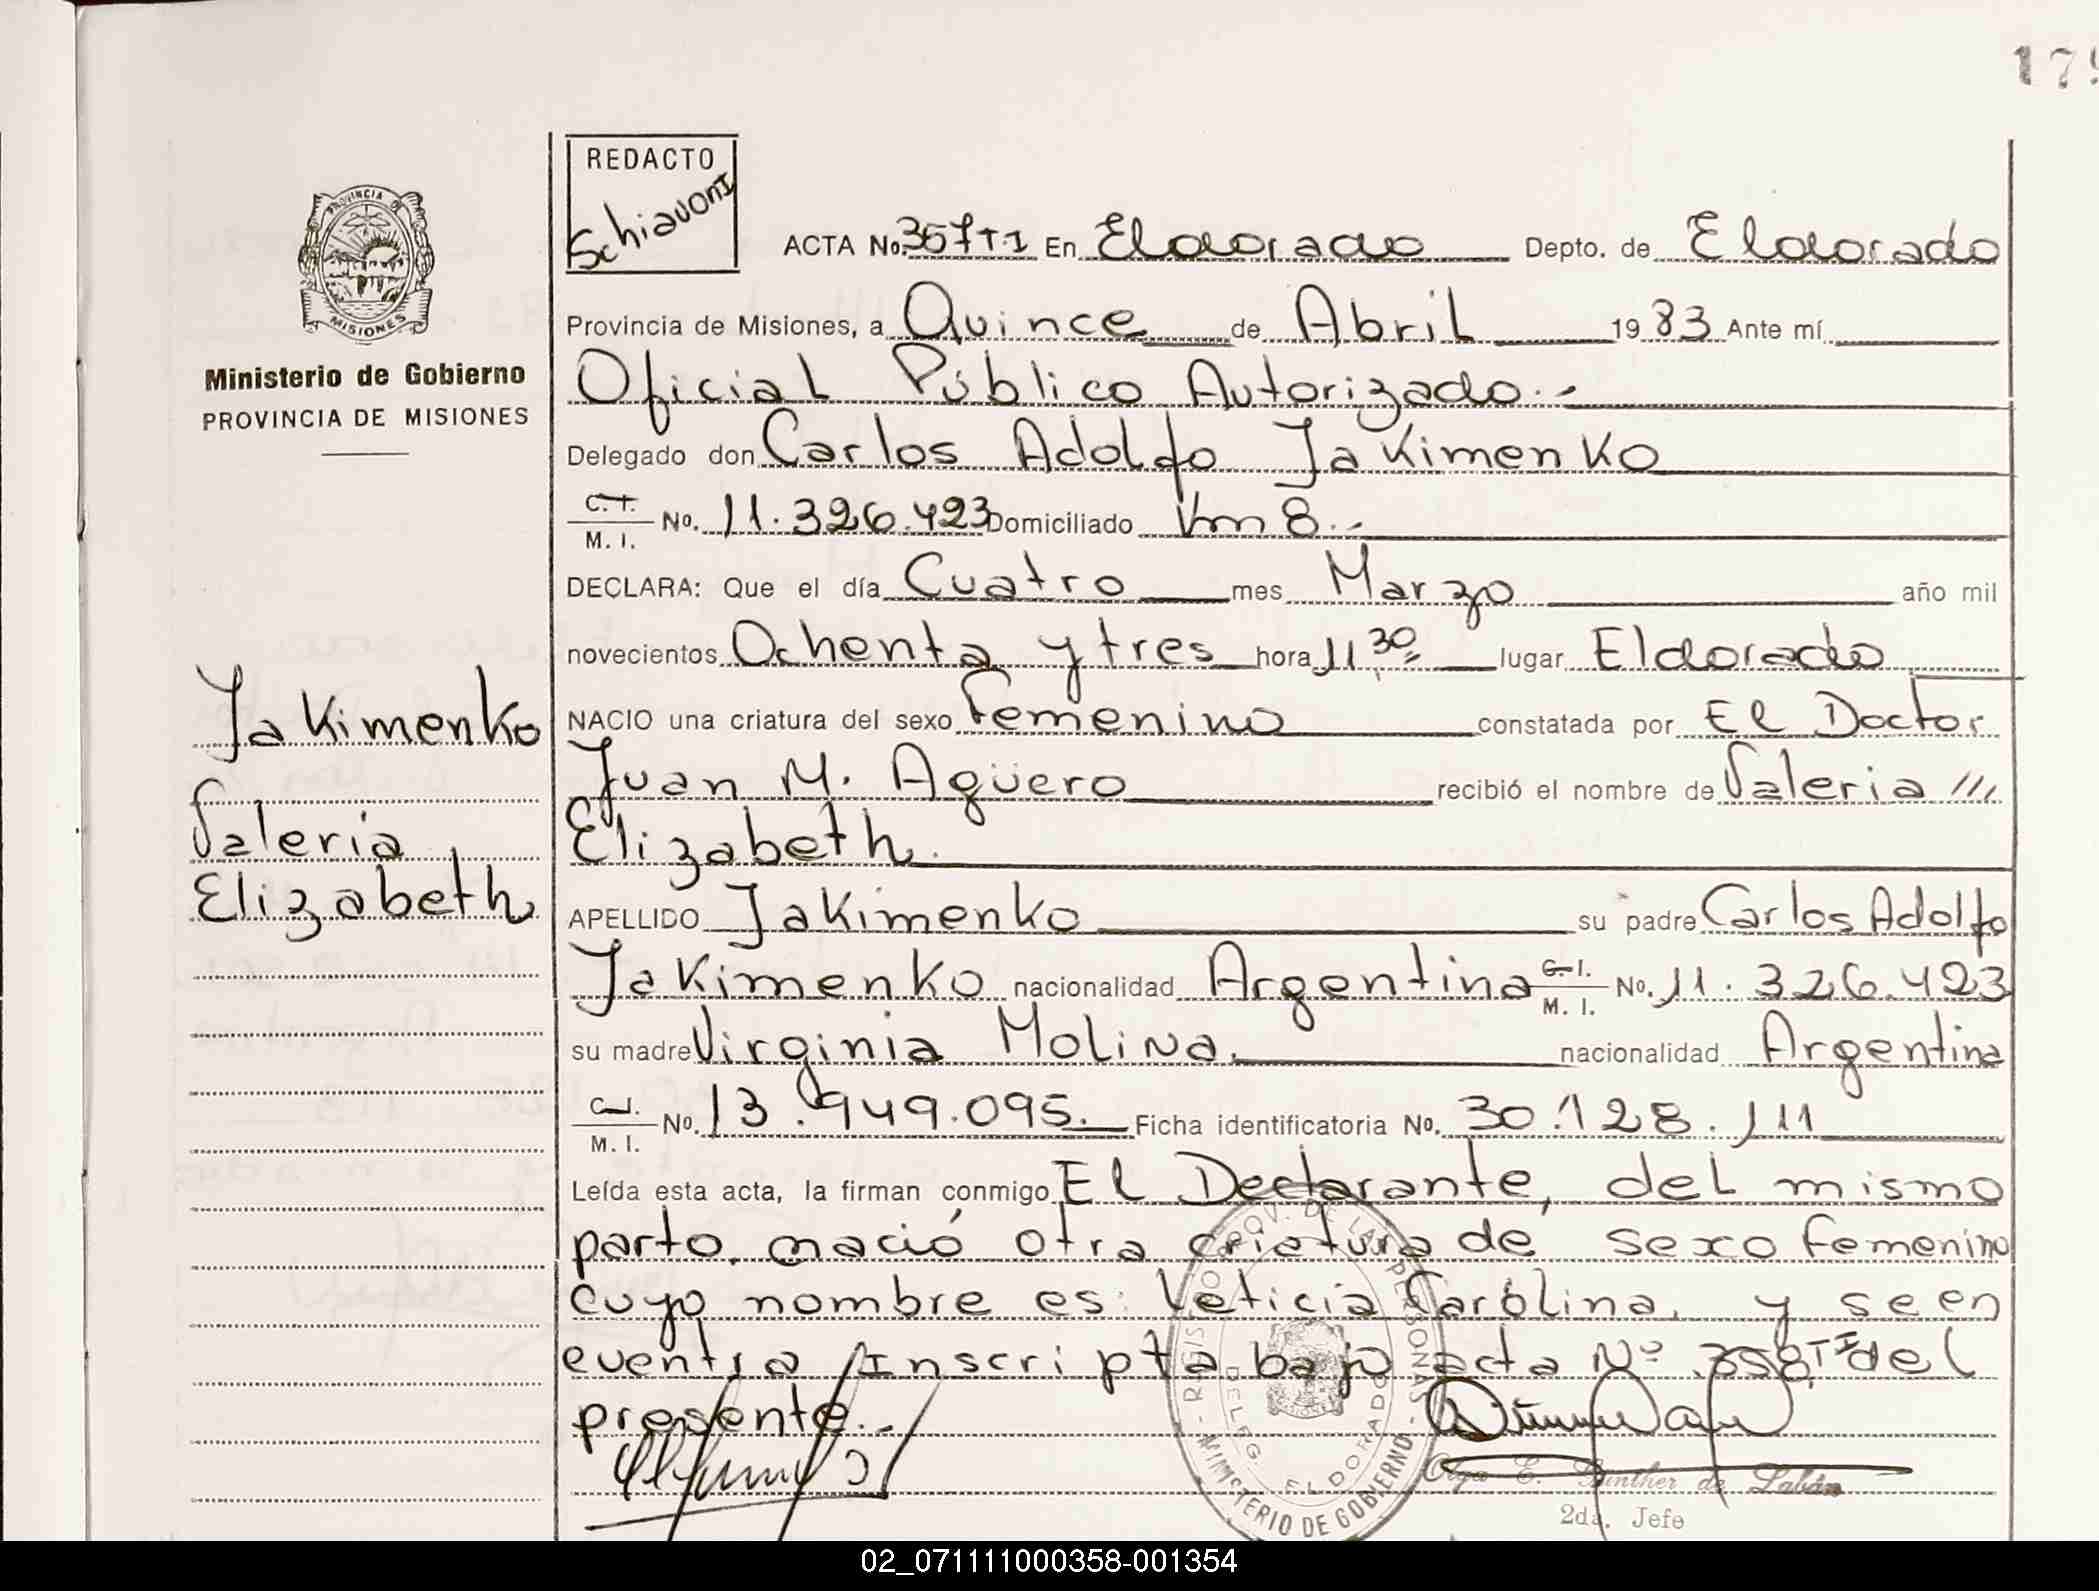 179
REDACTO
Schiavoni
PROVINCIA DE
MISIONES
ACTA No. 357 T I En Eldorado Depto. de Eldorado
Provincia de Misiones, a Quince de Abril 1983 Ante mí
Ministerio de Gobierno
PROVINCIA DE MISIONES
Oficial Público Autorizado.-
Delegado don Carlos Adolfo Jakimenko
C. I. M. I. No. 11.326.423 Domiciliado Km 8.-
DECLARA: Que el día Cuatro mes Marzo año mil
novecientos Ochenta y tres hora 11 30 lugar Eldorado
Jakimenko
Valeria
Elizabeth
NACIO una criatura del sexo Femenino constatada por El Doctor
Juan M. Agüero recibió el nombre de Valeria ///
Elizabeth.
APELLIDO Jakimenko su padre Carlos Adolfo
Jakimenko nacionalidad Argentina C. I. M. I. No. 11.326.423
su madre Virginia Molina. nacionalidad Argentina
C. I. M. I. No. 13.949.095. Ficha identificatoria No. 30.128.111
Leída esta acta, la firman conmigo El Declarante, del mismo
parto. nació otra criatura de sexo femenino
cuyo nombre es: Leticia Carolina, y se en
euentra inscripta bajo acta Nº 358 T I del
presente.-
REGISTRO PROV. DE LAS PERSONAS
DELEG. ELDORADO
MINISTERIO DE GOBIERNO
Olga E. Günther de Labán
2da. Jefe
02_071111000358-001354